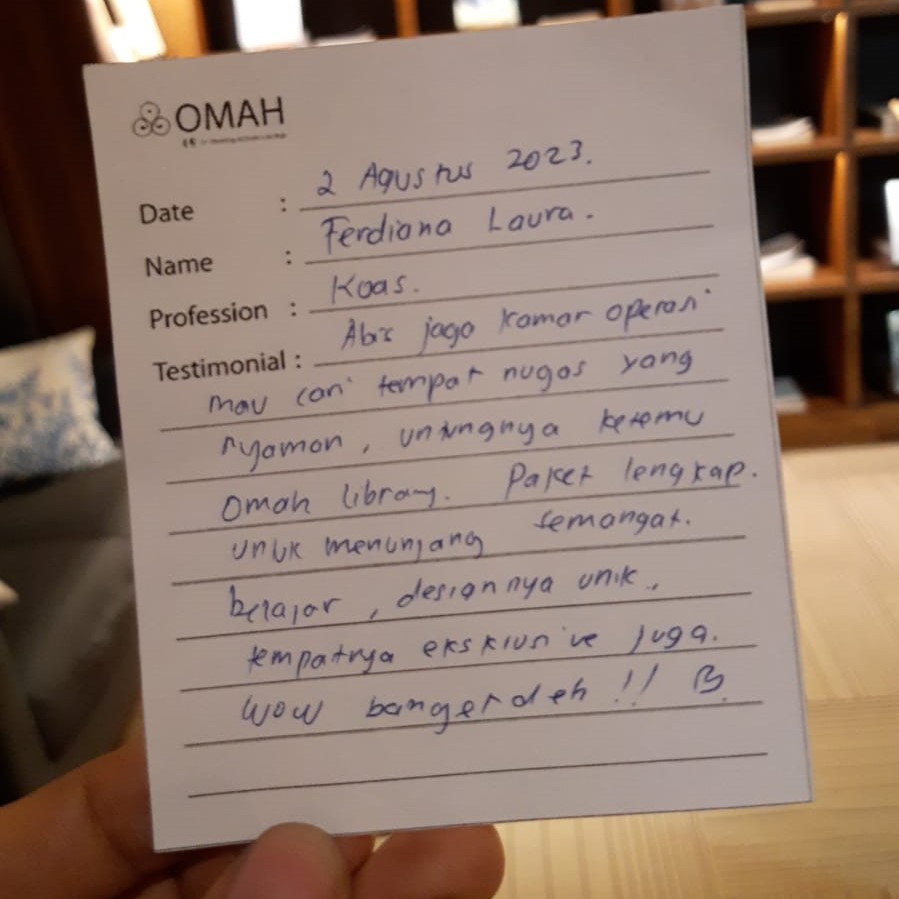 OMAH
Date : 2 Agustus 2023.
Name : Ferdiana Laura.
Profession : Koas.
Testimonial : Abis jago kamar operasi
mau cari tempat nugas yang
nyaman, untungnya ketemu
Omah library. Paket lengkap.
untuk menunjang semangat.
belajar, designnya unik,
tempatnya eksklusive juga.
WOW banget deh !! B